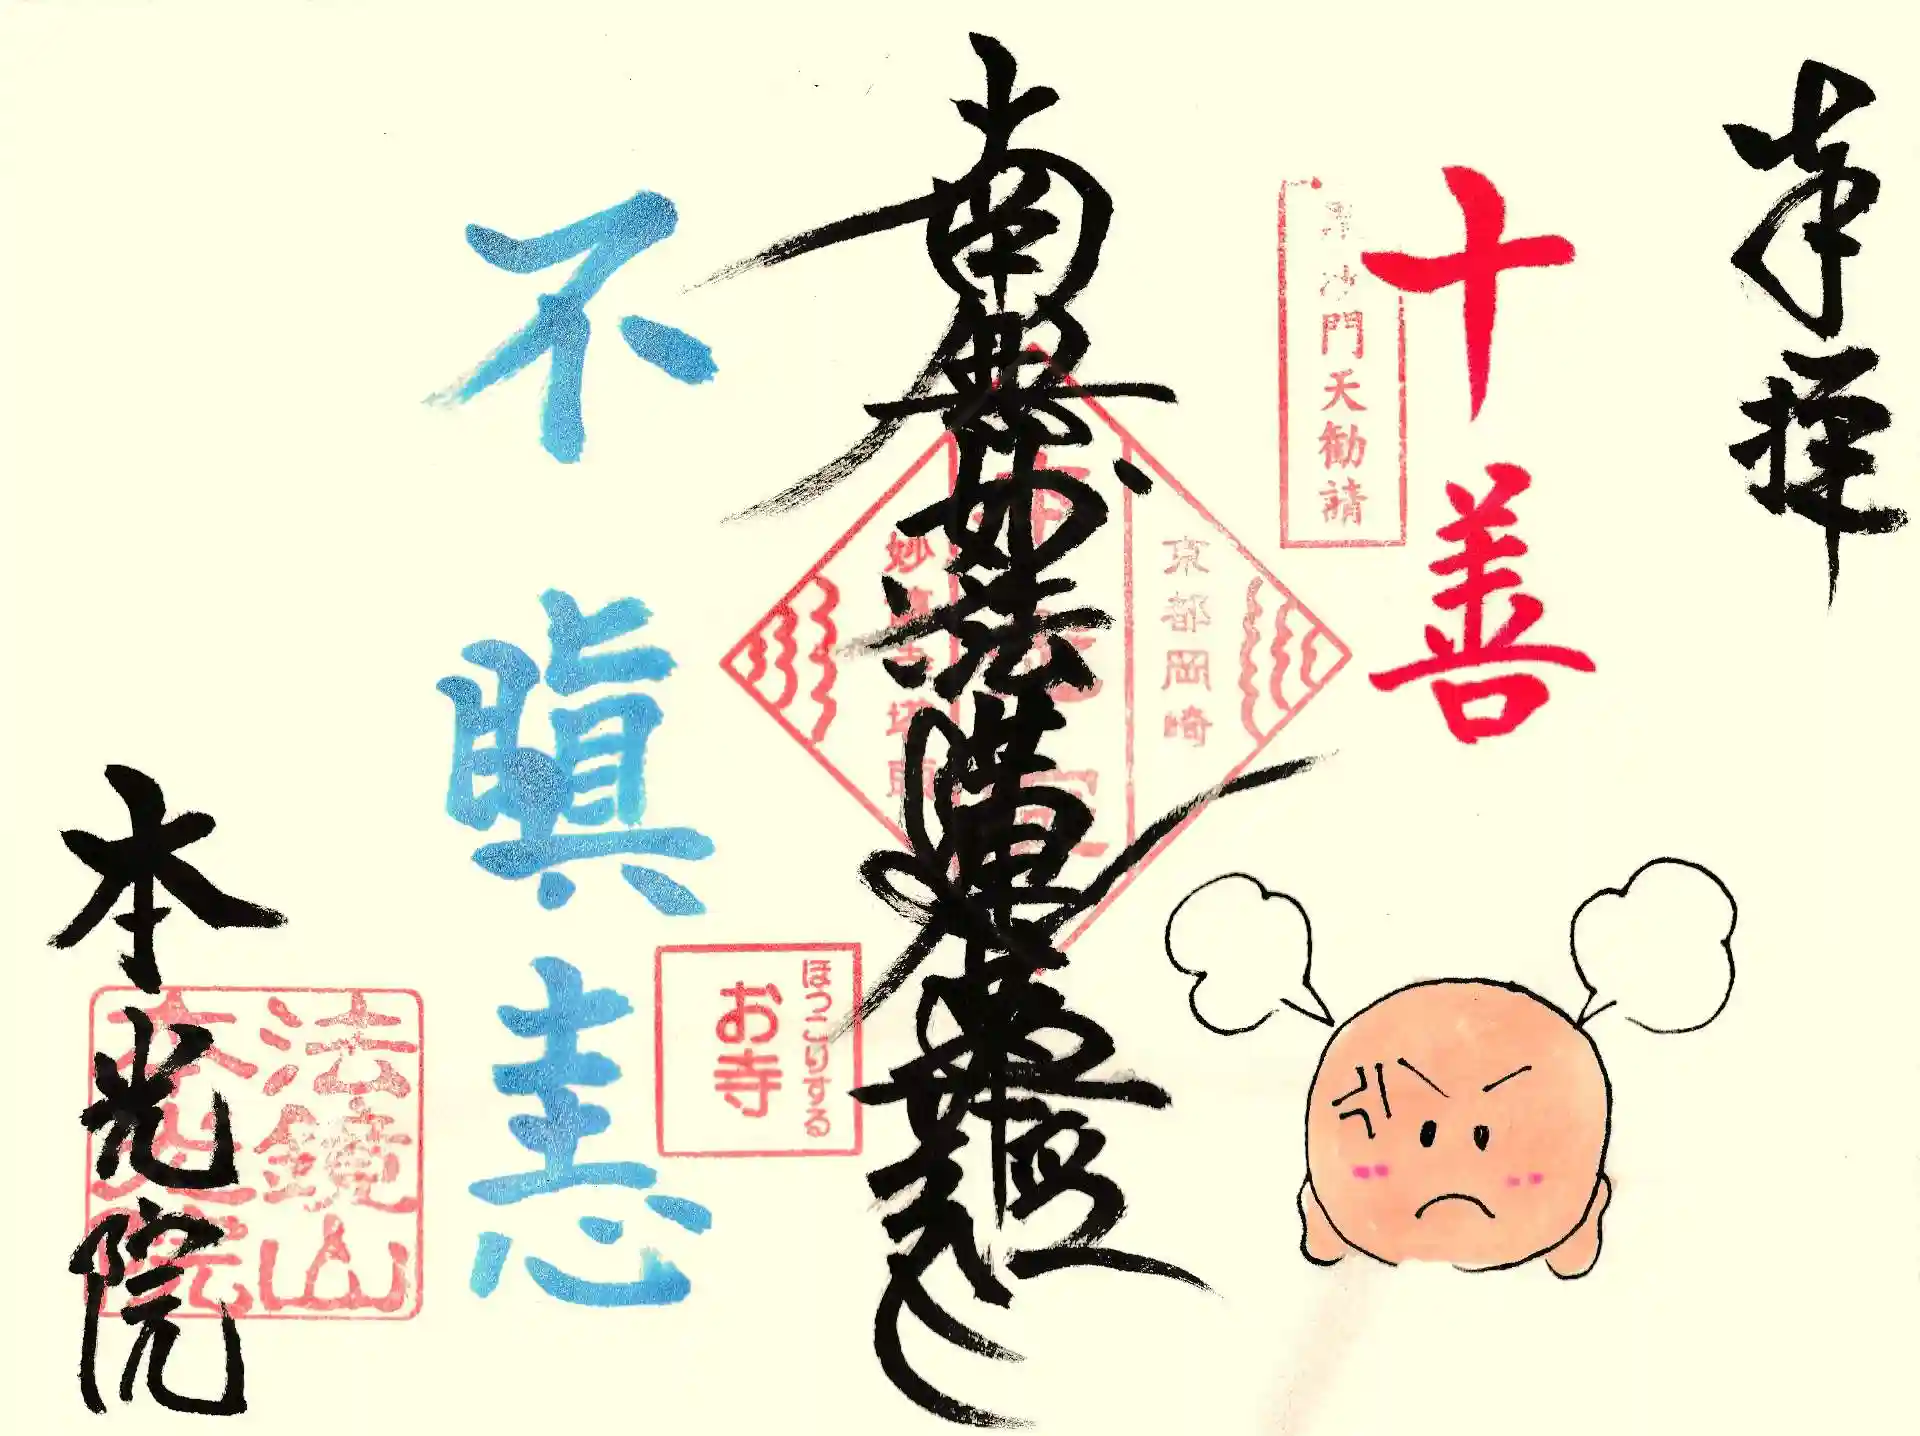 奉拝
十善
毘沙門天勧請
京都岡崎
南無妙法蓮華経
ほっこりする
お寺
不瞋恚
法鏡山
本光院
本光院